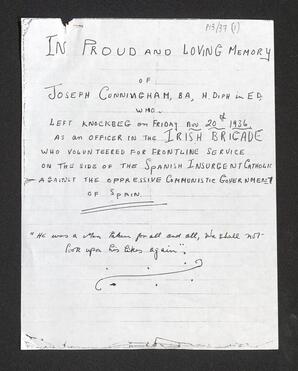 P13/37 (1)
IN PROUD AND LOVING MEMORY
OF
JOSEPH CUNNINGHAM, BA, H. DIPH in ED,
WHO
LEFT KNOCKBEG ON FRIDAY NOV 20th 1936
AS AN OFFICER IN THE IRISH BRIGADE
WHO VOLUNTEERED FOR FRONTLINE SERVICE
ON THE SIDE OF THE SPANISH INSURGENT CATHOLIC
AGAINST THE OPPRESSIVE COMMUNISTIC GOVERNMENT
OF SPAIN.
"HE was a Man taken for all and all, We shall not
look upon his likes again".